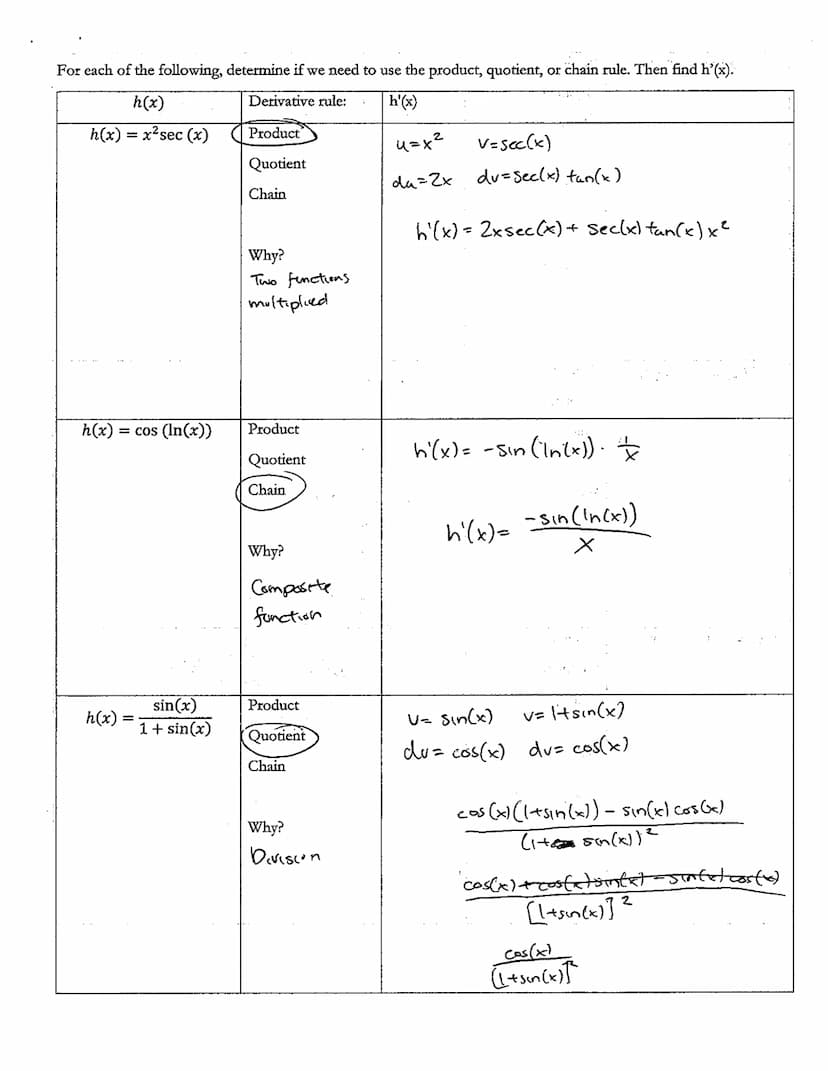 For each of the following, determine if we need to use the product, quotient, or chain rule. Then find h'(x).
h(x) Derivative rule: h'(x)
h(x) = x²sec (x)
Product
Quotient
Chain
Why?
Two functions
multiplied
u=x² v=sec(x)
du=2x dv=sec(x) tan(x)
h'(x) = 2xsec(x) + sec(x) tan(x) x²
h(x) = cos (ln(x))
Product
Quotient
Chain
Why?
Composite
function
h'(x) = -sin (ln(x)) · 1/x
h'(x) = -sin(ln(x)) / x
h(x) = sin(x) / 1 + sin(x)
Product
Quotient
Chain
Why?
Division
u= sin(x) v= 1+sin(x)
du= cos(x) dv= cos(x)
cos(x)(1+sin(x)) - sin(x) cos(x)
(1+ sin(x))²
cos(x) + cos(x) sin(x) - sin(x) cos(x)
[1+sin(x)]²
cos(x)
[1+sin(x)]²